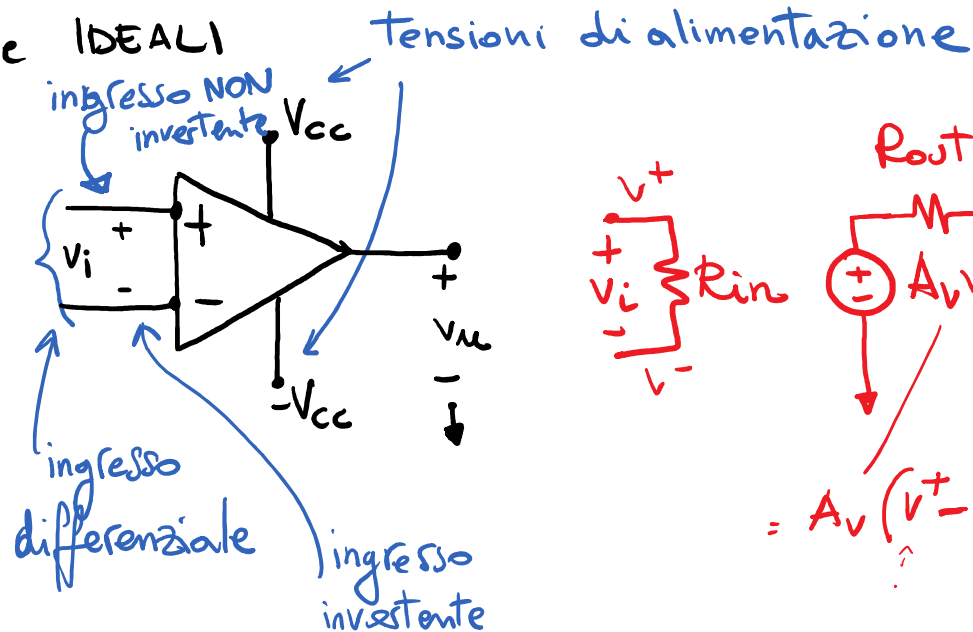 e IDEALI
tensioni di alimentazione
ingresso NON
invertente
Vcc
+
+
vi
-
-
+
vu
-
-Vcc
ingresso
differenziale
ingresso
invertente
v+
+
vi
-
v-
Rin
Rout
+
-
Av
= Av (v+ -